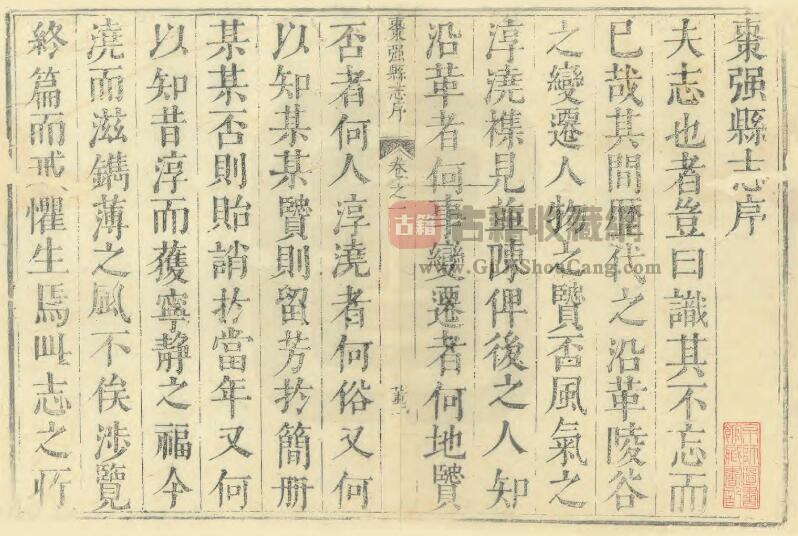 棗强縣志序
夫志也者豈曰識其不忘而
已哉其間歷代之沿革陵谷
之變遷人物之賢否風氣之
淳澆襍見並陳俾後之人知
沿革者何事變遷者何地賢
棗强縣志序 卷之一
否者何人淳澆者何俗又何
以知某某賢則留芳於簡册
某某否則貽誚於當年又何
以知昔淳而獲寧靜之福今
澆而滋鐫薄之風不俟涉覽
終篇而戒懼生焉此志之所
古籍
古籍收藏網
www.GujiShouCang.com